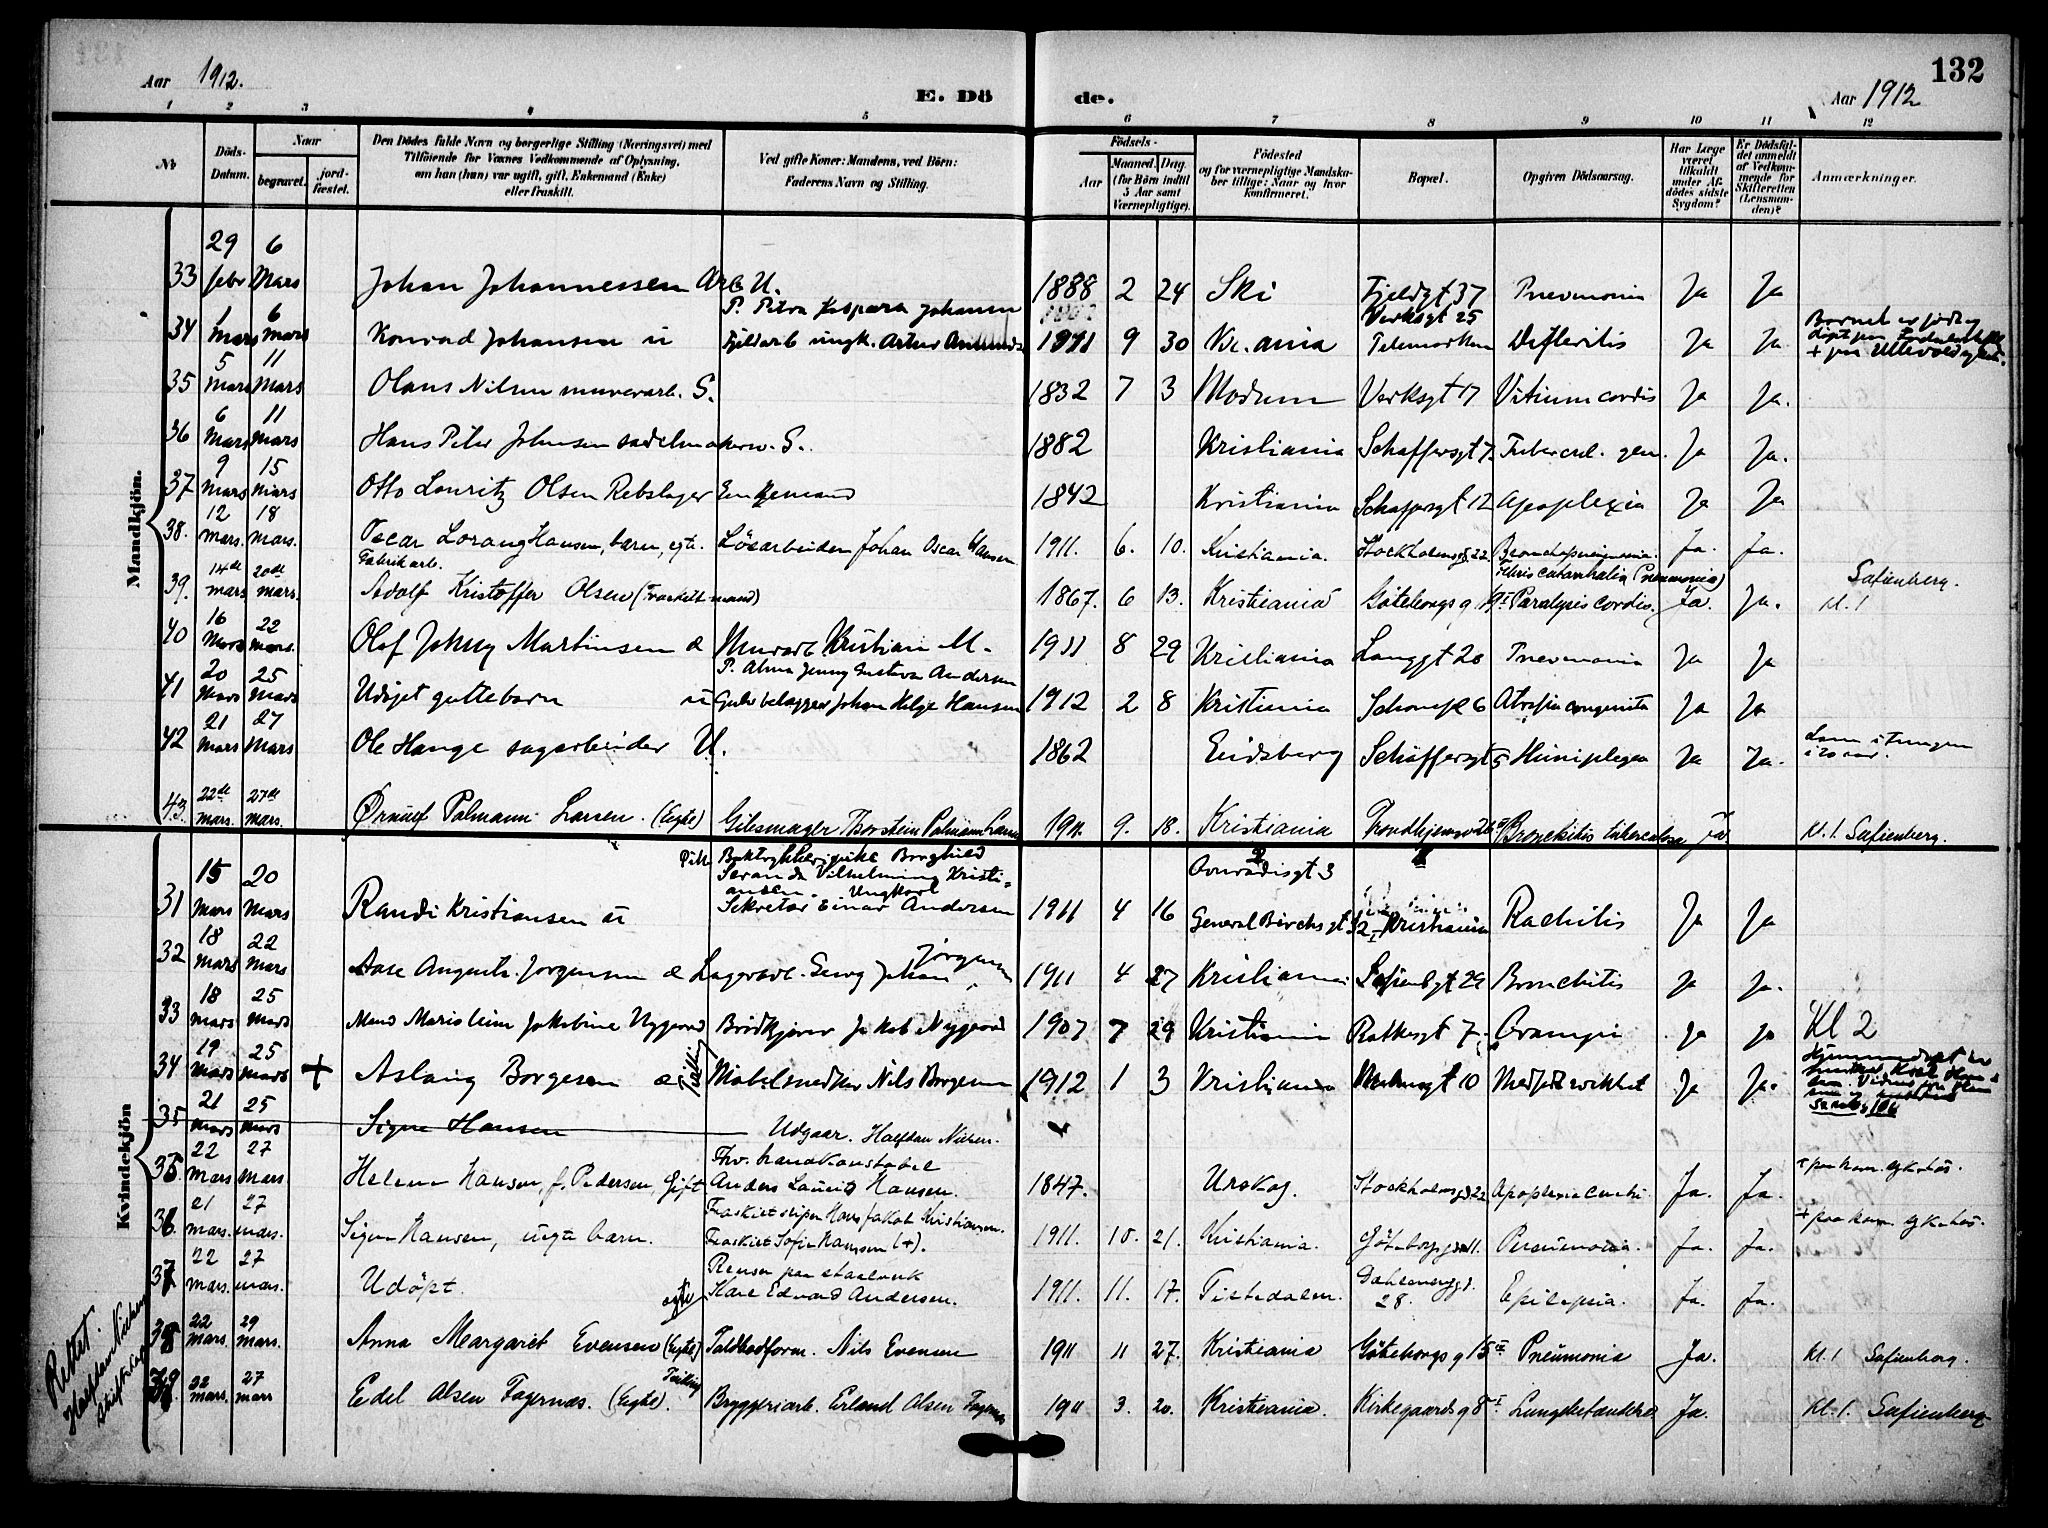 132
Aar 1912.
E. Dö
de.
Aar 1912
1 2 3 4 5 6 7 8 9 10 11 12
No
Döds-Datum.
Naar
begravet. jord-fæstet.
Den Dödes fulde Navn og borgerlige Stilling (Næringsvei) med
Tilföiende for Voxnes Vedkommende af Oplysning,
om han (hun) var ugift, gift, Enkemand (Enke)
eller fraskilt.
Ved gifte Koner: Mandens, ved Börn:
Faderens Navn og Stilling.
Födsels-
Aar
Maaned. Dag.
(for Börn indtil
5 Aar samt
Værnepligtige).
Födested
og for værnepligtige Mandska-
ber tillige: Naar og hvor
konfirmeret.
Bopæl.
Opgiven Dödsaarsag.
Har Læge
været
tilkaldt
under Af-
dödes sidste
Sygdom?
Er Dödsfal-
det anmeldt
af Vedkom-
mende for
Skifteretten
(Lensman-
den)?
Anmærkninger.
Mandkjön.
33 29 febr 6 Mars Johan Johannessen Arb U. 1888 2 24 Ski Fjeldgt 37 Pnevmonia Ja Ja
P. Petra Kaspara Johansen
34 1 Mars 6 mars Konrad Johansen u Fjeldarb ungk. Artur 1911 9 30 Kr.ania Verksgt 25 Telemarken Difteritis Ja Ja Barnet er
35 5 Mars 11 Mars Olaus Nilsen murerarb. G. 1832 7 3 Modum Verksgt 17 Vitium cordis Ja Ja.
36 6 Mars 11 mars Hans Peter Johnsen sadelmakersv. G. 1882 Kristiania Schaffersgt 7. Tubercul. gen. Ja Ja.
37 9 mars 15 mars Otto Lauritz Olsen Rebslager Enkemand 1842 Kristiania Schaffersgt 12 Apoplexia Ja Ja
38. 12 mars. 18 mars. Oscar Lorang Hansen, barn, egte. Lösarbeider Johan Oscar Hansen 1911. 6. 10. Kristiania. Stockholmsgd. 22. Bronchopneumonia. Ja. Ja.
Fabrikarb.
39. 14de mars 20de mars. Adolf Kristoffer Olsen (Fraskilt mand) 1867. 6 13. Kristiania Göteborgs g. 19 I Febris catarrhalis (Pneumonia) Paralysis cordis. Ja. Ja. Kl. 1 Safienberg.
40 16 Mars 22 mars. Olaf Johny Martinsen æ Murarb Kristian M. 1911 8 29 Kristiania Langgt 20 Pnevmonia Ja Ja
P. Alma Jenny Gustava Andersen
41 20 Mars 25 Mars Udöpt guttebarn u Gulvbelægger Johan Helge Hansen 1912 2 8 Kristiania Schousp 6 Atrofia congenita Ja Ja
42 21 Mars 27 Mars Ole Hauge sagarbeider U. 1862 Eidsberg Schäffersgt 5 Hemiplegea Ja Ja. Lam i tungen
43. 22de mars. 27de mars. Ørnulf Palmann Larsen. (Egte) Gibsmager Thorstein Palmann Larsen 1911. 9. 18. Kristiania Trondhjemsv Bronchitis tuberculosa Ja. Kl. 1. Safienberg.
Kvindekjön
31 15 Mars 20 Mars Randi Kristiansen u Pike Boktrykkeripike Borghild
Seranda Vilhelmine Kristi-
ansen. Ungkarl
Sekretær Einar Andersen 1911 4 16 Conradisgt 3 General Birchs gt 32 I Kristiania Rachitis Ja Ja
32 18 Mars 22 Mars Aase Augusta Jörgensen æ Lagerarb. Georg Johan Jörgensen 1911 4 27 Kristiania Safienbgt 29 Bronchitis Ja Ja.
33 18 mars 25 Mars Jakobine Nygaard Brödkjörer Jakob Nygaard 1907 7 29 Kristiania Rathkesgt 7. Crampi Ja Ja Kl 2
34 19 Mars 25 Mars + Aslaug Borgesen æ Tvilling Möbelsnedker Nils Borgesen 1912 1 3 Kristiania 10 Medfödt svakhet Ja Ja.
35 21 Mars 25 Mars Signe Hansen Udgaar. Halfdan Nielsen.
35. 22 mars 27 mars. Helene Hansen, f. Pedersen, Gift Fhv. brandkonstabel
Anders Laurits Hansen. 1847. Urskog. Stockholmsgd 22 Apoplexia cerebri. Ja. Ja. + paa kom. sykehus.
36. 21 mars. 27 mars. Signe Hansen, uegte barn. Fraskilt sliper Hans Jakob Kristiansen.
Fraskilt Sofie Hanssen (+). 1911. 10. 21. Kristiania. Göteborggd. 11. Pneumonia. Ja. Ja. + paa kom sykehus.
37 22 mars. 27 mars. Udöpt. egte Renser paa staalverk
Karl Edvard Andersen. 1911. 11. 17. Tistedalen. 28. Epilepsia. Ja. Ja.
38 22 mars. 29 mars. Anna Margaret Evensen (Egte) Toldbodform. Nils Evensen 1911 11 27. Kristiania Göteborgs g 15 II Pneumonia Ja. Kl. 1 Safienberg.
39 22 mars. 27 mars Edel Alsen Fagernæs. (Egte). Tvilling Bryggeriarb. Erland Alsen Fagernæs 1911 3. 20. Kristiania. Kirkegaards g 8 I Lungebetændelse Ja. Kl. 1. Safienberg
Rettet.
Halfdan Nielsen